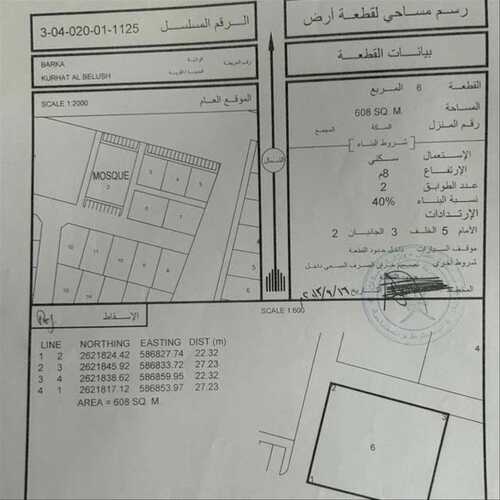 رسم مساحي لقطعة أرض
الرقم المسلسل 3-04-020-01-1125
بيانات القطعة
BARKA
KURHAT AL BELUSH
القطعة 6 المربع
المساحة 608 SQ. M.
رقم المنزل السكة المجمع
شروط البناء
الإستعمال سكني
الإرتفاع 8م
عدد الطوابق 2
نسبة البناء 40%
الإرتدادات
الأمام 5 الخلف 3 الجانبان 2
موقف السيارات داخل حدود القطعة
شروط أخرى
SCALE 1:2000 الموقع العام
MOSQUE
2
3
4
5
10
11
12
13
14
1
الشمال
SCALE 1:600
الإسقاط
LINE NORTHING EASTING DIST (m)
1 2 2621824.42 586827.74 22.32
2 3 2621845.92 586833.72 27.23
3 4 2621838.62 586859.95 22.32
4 1 2621817.12 586853.97 27.23
AREA = 608 SQ. M.
2
3
6
1